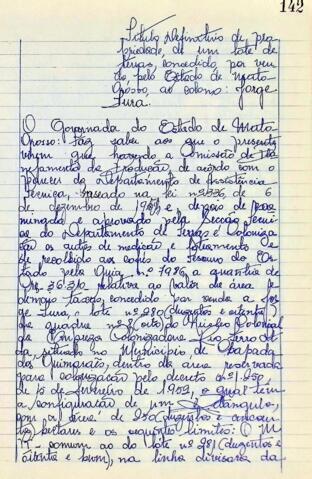 142
Titulo Definitivo de pro
priedade, de um lote de
terras, concedido, por ven
da, pelo Estado de Mato
Grosso, ao colono: Jorge
Jura.
O Governador do Estado de Mato
Grosso: Faz saber aos que o presente
virem que, havendo a Comissão de Pla
nejamento da Produção, de acordo com o
parecer do Departamento de Assistência
Técnica, baseado na lei nº 336, de 6
de dezembro de 1949, e depois de
e aprovado pela Secção Técni
ca do Departamento de Terras e Coloniza
ção os autos de medição e loteamento e
de recolhido aos cofres do Tesouro do Es
tado pela Guia nº 7986, a quantia de
relativa ao valor da área e
demais taxas, concedido por venda a Jor
ge Jura, o lote nº 280 (duzentos e oitenta)
da quadra nº 8 (oito) do Núcleo Colonial
da Empreza Colonizadora Rio Ferro Lt
da, situado no Município de Chapada
dos Guimarães, dentro da área reservada
para colonização pelo decreto nº 1.250,
de 15 de fevereiro de 1952, o qual tem
a configuração de um
com a área de 250 (duzentos e cincoen
ta) hectares e os seguintes limites: O M
comum ao do lote nº 281 (duzentos e
oitenta e hum), na linha divisória da